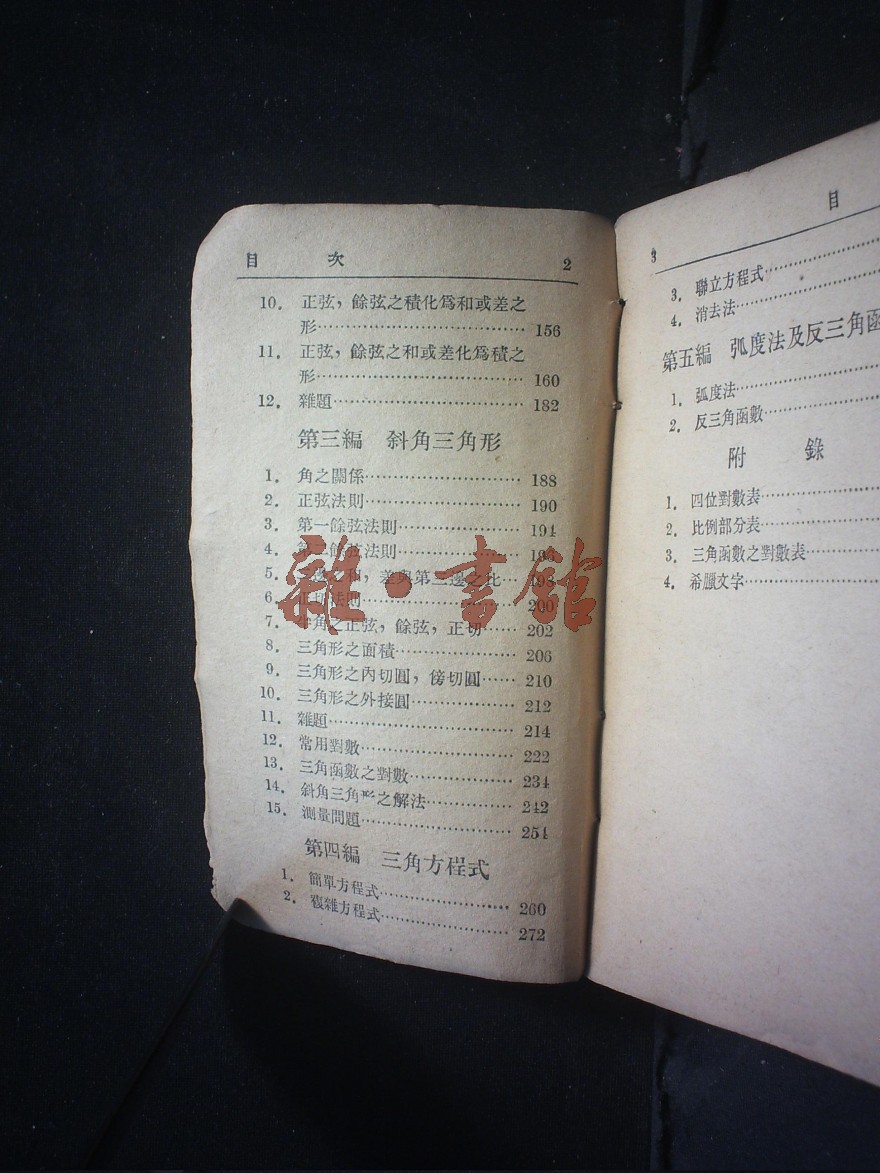 目 次 2
10. 正弦，餘弦之積化爲和或差之
形……………………………… 156
11. 正弦，餘弦之和或差化爲積之
形……………………………… 160
12. 雜題…………………………… 182
第三編 斜角三角形
1. 角之關係……………………… 188
2. 正弦法則……………………… 190
3. 第一餘弦法則………………… 194
4. 第二餘弦法則…………………
5. 之和，差與第三邊之比… 198
6. 正切法則……………………… 200
7. 半角之正弦，餘弦，正切…… 202
8. 三角形之面積………………… 206
9. 三角形之內切圓，傍切圓…… 210
10. 三角形之外接圓……………… 212
11. 雜題…………………………… 214
12. 常用對數……………………… 222
13. 三角函數之對數……………… 234
14. 斜角三角形之解法…………… 242
15. 測量問題……………………… 254
第四編 三角方程式
1. 簡單方程式…………………… 260
2. 覆雜方程式…………………… 272
雜·書館
3 目
3. 聯立方程式……………
4. 消去法…………………
第五編 弧度法及反三角函
1. 弧度法…………………
2. 反三角函數……………
附 錄
1. 四位對數表……………
2. 比例部分表……………
3. 三角函數之對數表……
4. 希臘文字………………